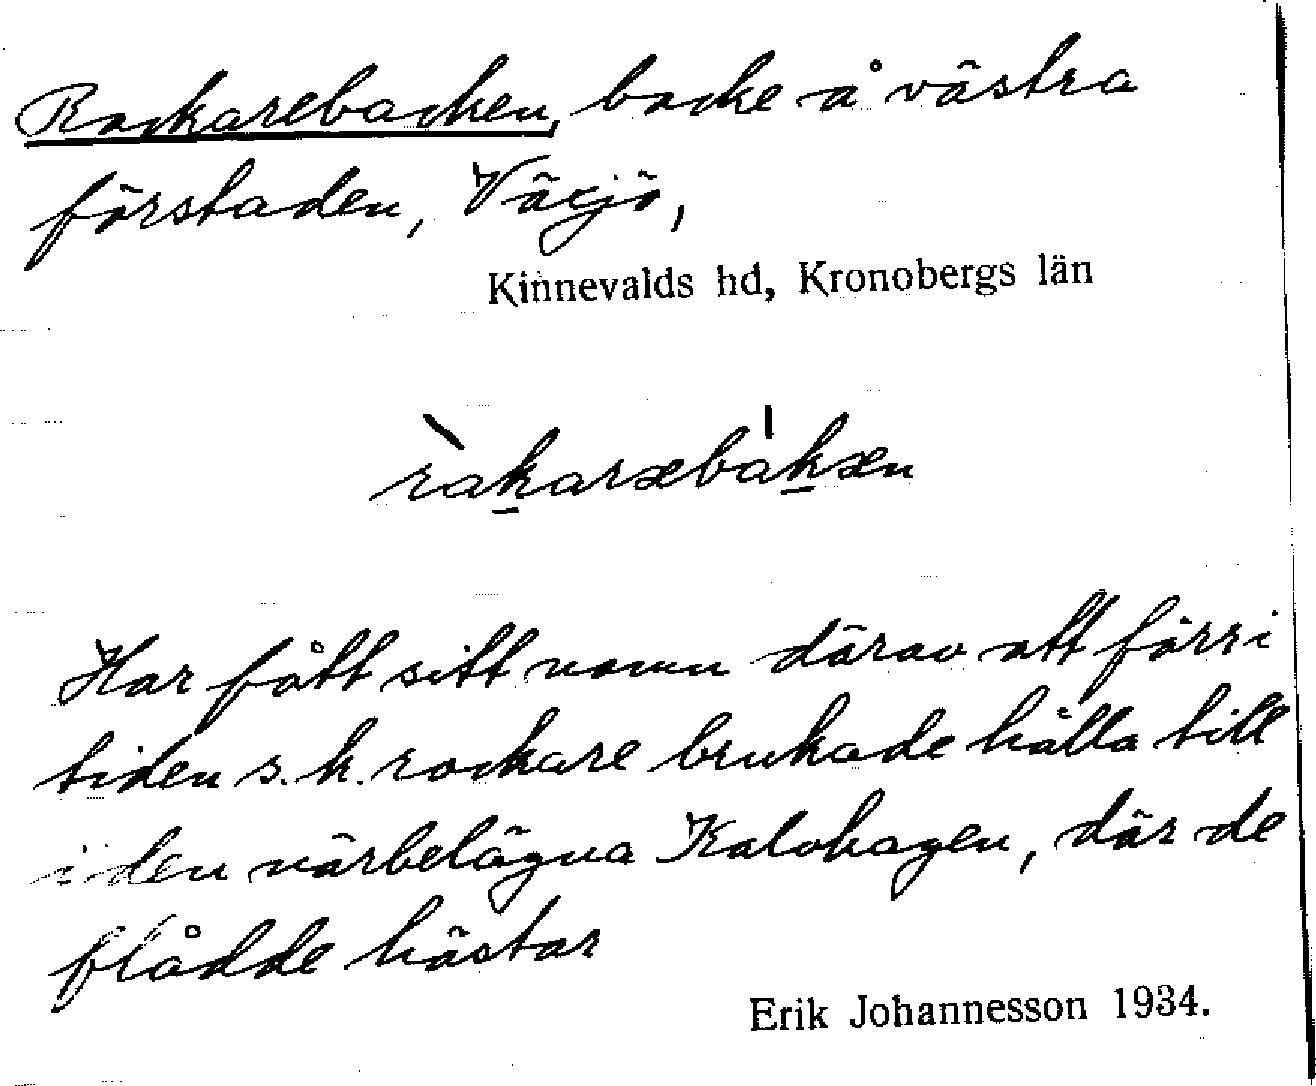 Rackarebacken, backe å västra
förstaden, Växjö,
Kinnevalds hd, Kronobergs län
ràkaræbákæn
Har fått sitt namn därav att förr i
tiden s.k. rackare brukade hålla till
i den närbelägna Kalvhagen, där de
flådde hästar
Erik Johannesson 1934.